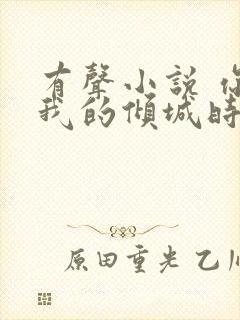 有聲小說 你
我的傾城時
原田重光 乙川